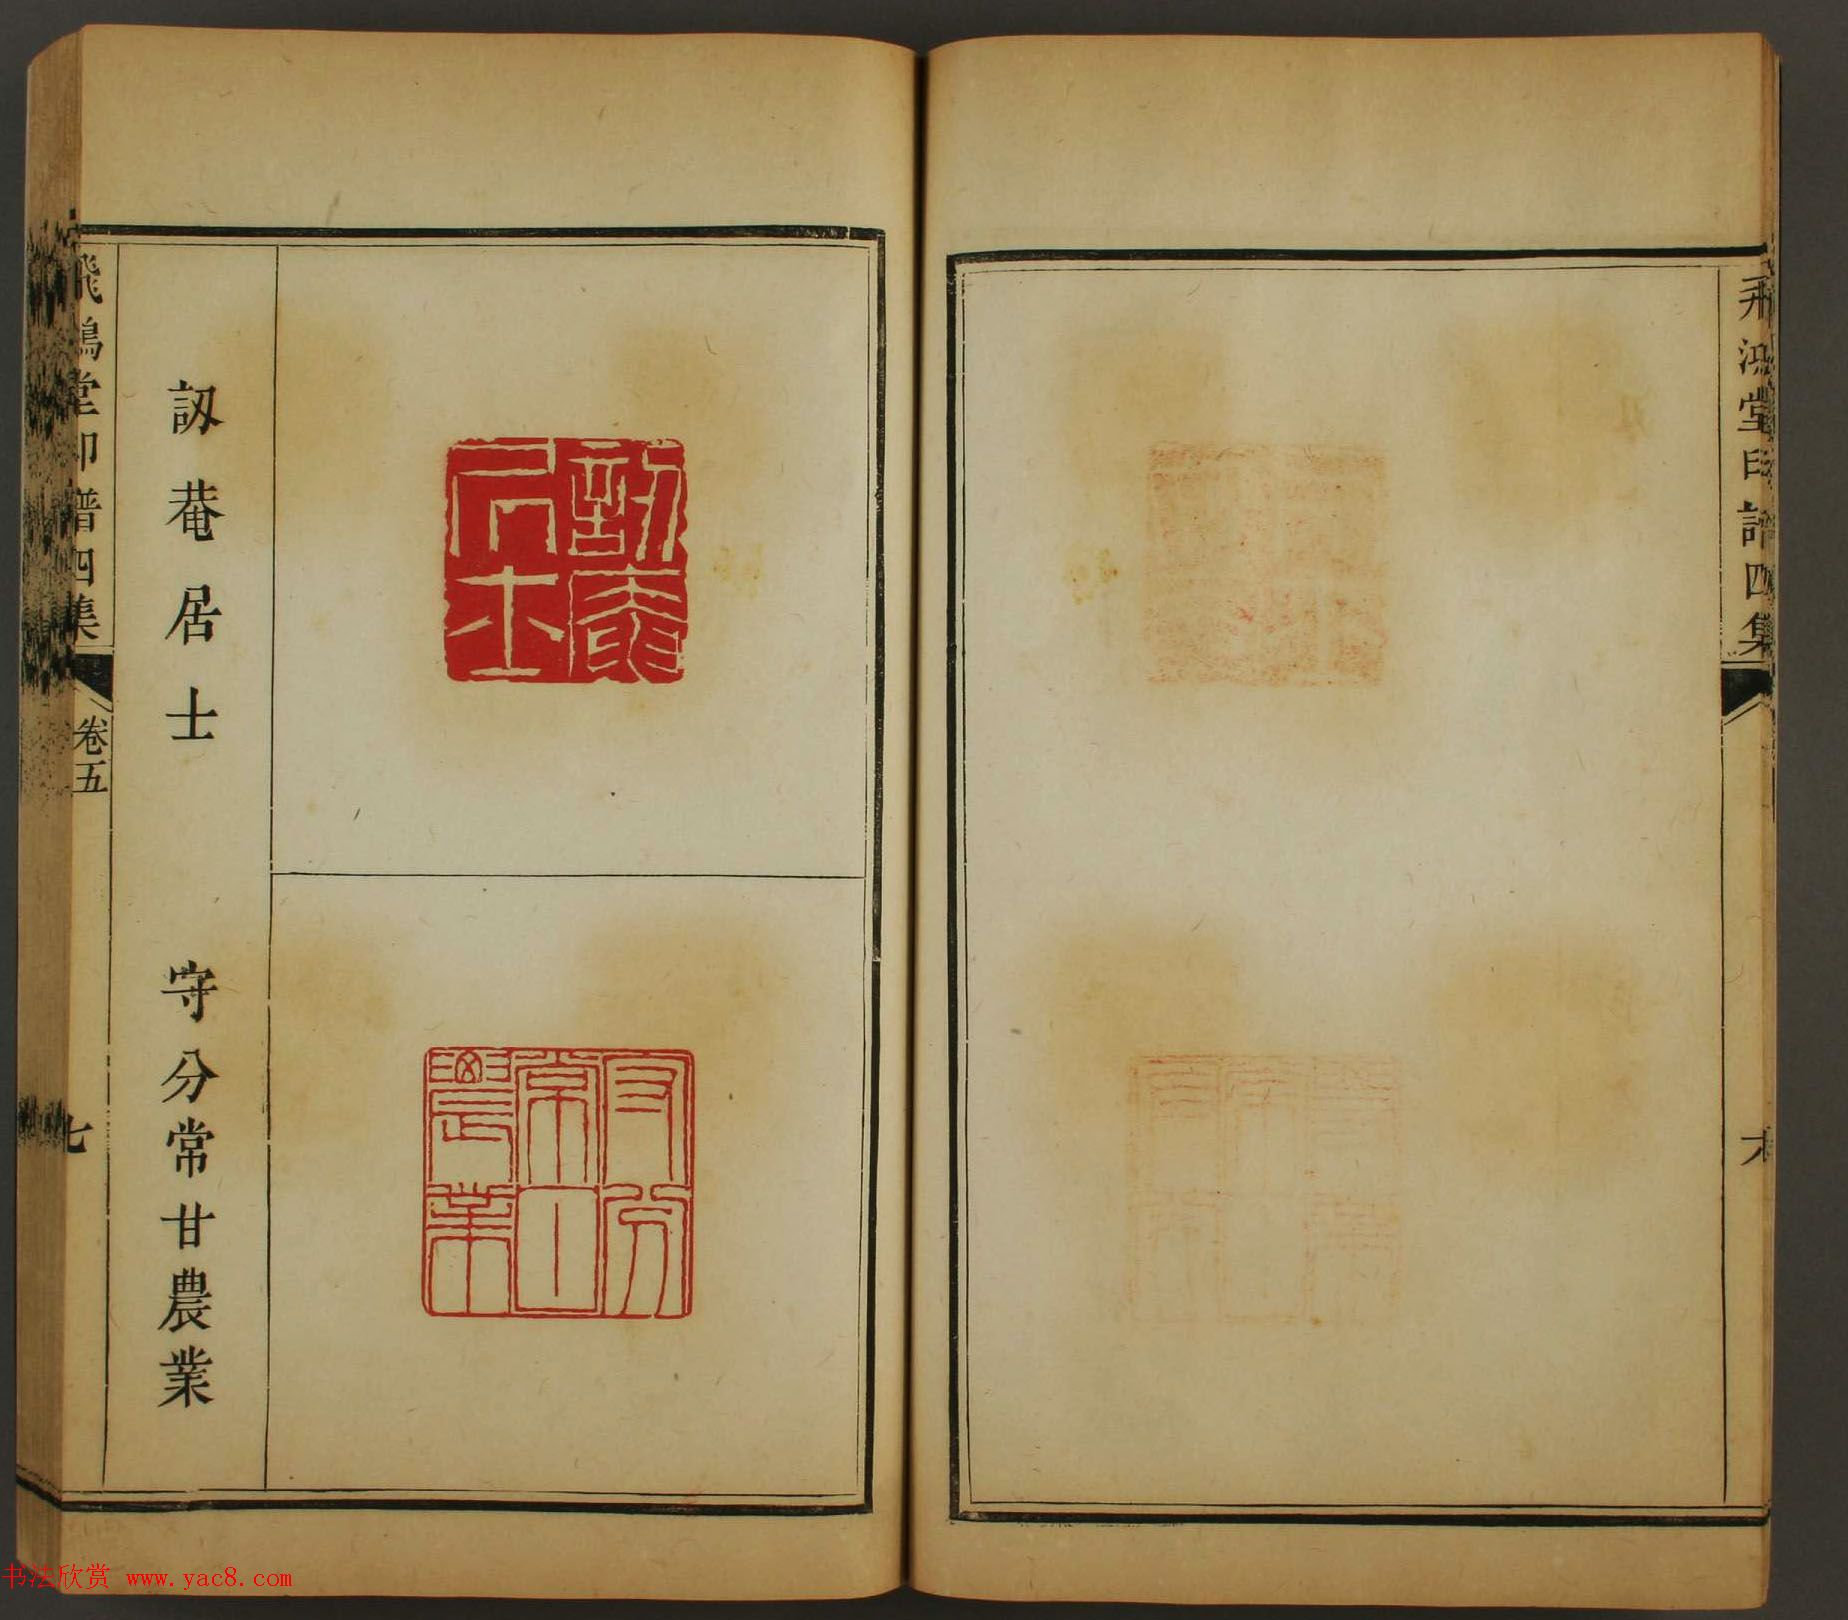 飛鴻堂印譜四集
六
訒菴居士
守分常甘農業
飛鴻堂印譜四集
卷五
七
书法欣赏 www.yac8.com